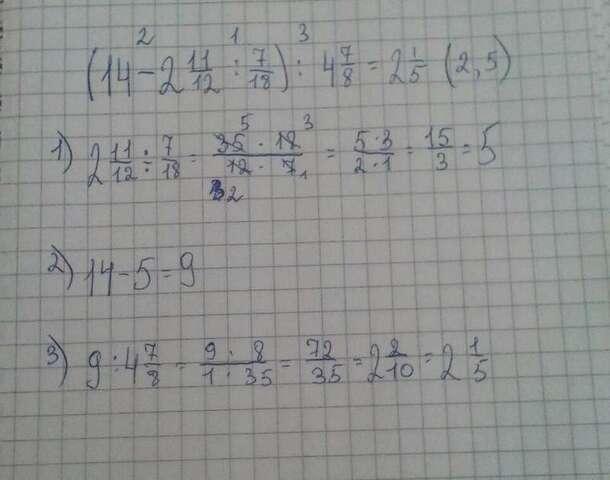 (14 - 2 11/12 : 7/18) : 4 7/8 = 2 1/5 (2,5)
1) 2 11/12 : 7/18 = 35 · 18 / 12 · 7 = 5·3 / 2·1 = 15/3 = 5
2) 14 - 5 = 9
3) 9 : 4 7/8 = 9 : 8 / 1 : 35 = 72/35 = 2 2/10 = 2 1/5